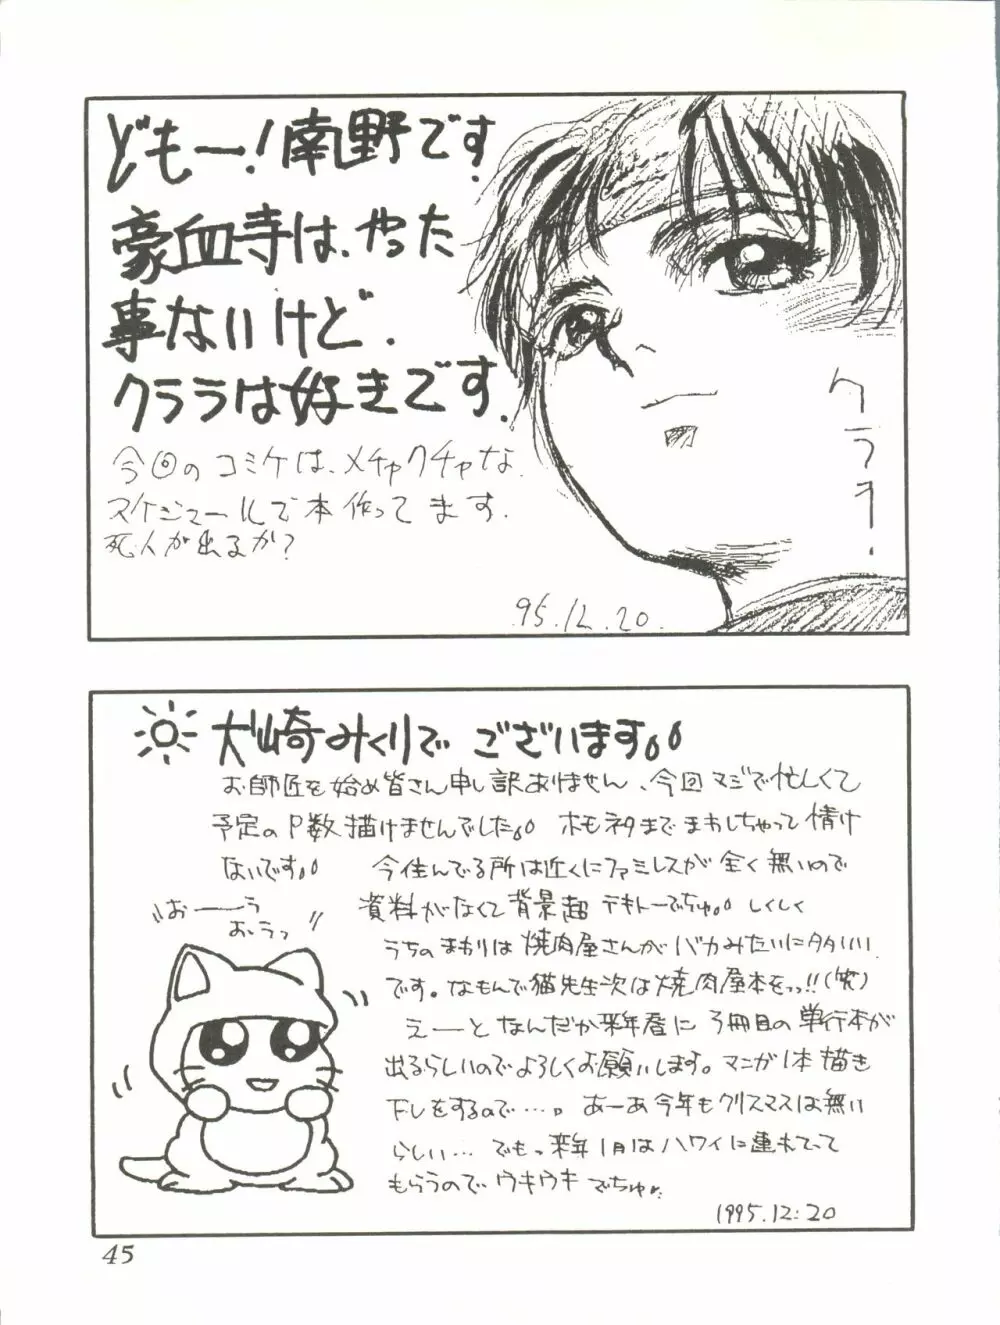 どもー!南野です.
豪血寺は、やった
事ないけど.
クララは好きです.
今回のコミケは、メチャクチャな
スケジュールで本作ってます.
死人が出るか?
クララ.
95.12.20.
犬崎みくりで ございます。。
お師匠を始め皆さん申し訳ありません、今回マジで忙しくて
予定のP数描けませんでした。。 ホモネタまでまわしちゃって情け
ないです。。 今住んでる所は近くにファミレスが全く無いので
資料がなくて背景超テキトーでちゅ。。しくしく
うちのまわりは焼肉屋さんがバカみたいに多いい
です。なもんで猫先生次は焼肉屋本をっっ!!(笑)
えーと なんだか来年春に3冊目の単行本が
出るらしいのでよろしくお願いします。マンガ1本描き
下しをするので…。 あーあ今年もクリスマスは無い
らしい… でもっ来年1月はハワイに連れてって
もらうのでウキウキでちゅ
1995.12.20
おーーう
おうっ
45